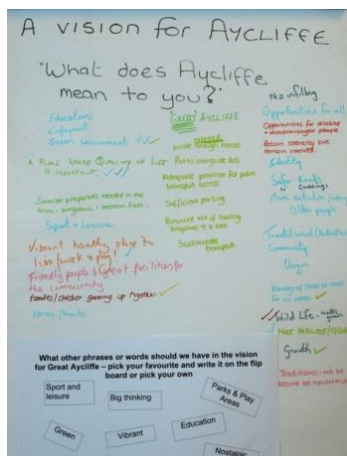 A VISION FOR AYCLIFFE
"What does Aycliffe
mean to you?"
Education
Employment
Green environment
A PLACE WHERE QUALITY OF LIFE
IS important
Smaller properties needed in the
town - bungalows
Sport + Leisure
Vibrant healthy place to
live/work + play!
Friendly people & Great facilities for
the community
families/children growing up together
GREAT AYCLIFFE
Wide through routes
Adequate provision for public
transport access
Sufficient parking
Balanced mix of housing
bungalows
Sustainable
transport
No infilling
Opportunities for all
Opportunities for disabled
+ disadvantaged people
Retain identities but
remain involved.
Identity
Safer Roads
Crossings
More activities
Older people
Traditional
Community
Unique
for all needs
Wild Life
Growth
Traditional - not to
What other phrases or words should we have in the vision
for Great Aycliffe – pick your favourite and write it on the flip
board or pick your own
Sport and
leisure
Big thinking
Parks & Play
Areas
Green
Vibrant
Education
Nostalgic